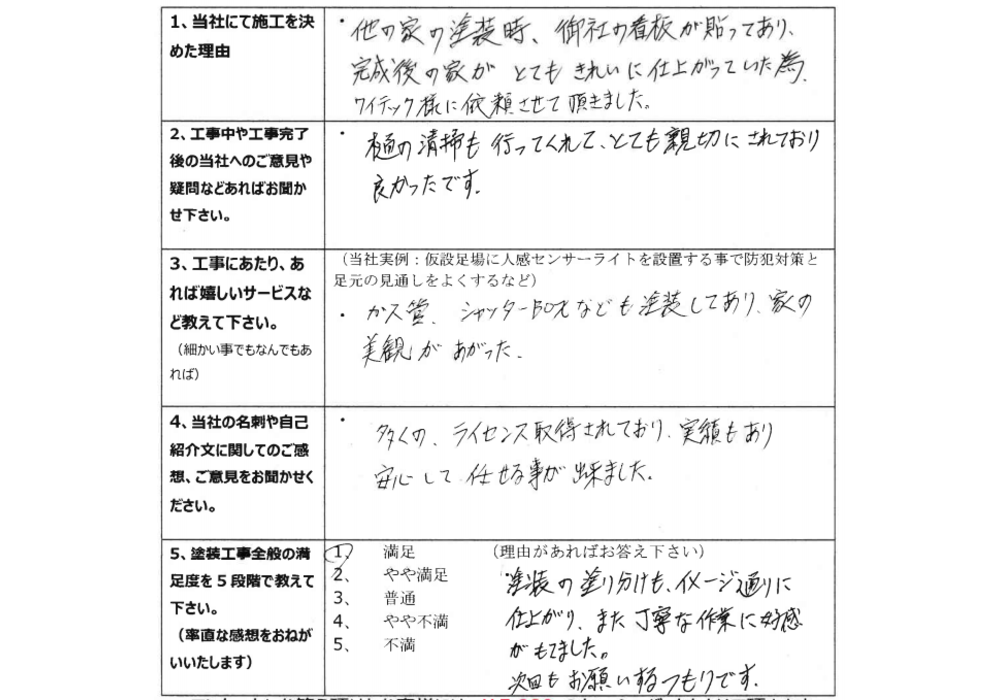 1、当社にて施工を決
めた理由
・他の家の塗装時、御社の看板が貼ってあり、
完成後の家が とても きれいに仕上がっていた為、
ワイテック様に依頼させて頂きました。
2、工事中や工事完了
後の当社へのご意見や
疑問などあればお聞か
せ下さい。
・樋の清掃も行ってくれて、とても親切にされており
良かったです。
3、工事にあたり、あ
れば嬉しいサービスな
ど教えて下さい。
（細かい事でもなんでもあ
れば）
（当社実例：仮設足場に人感センサーライトを設置する事で防犯対策と
足元の見通しをよくするなど）
・ガス管、シャッターBOXなども塗装してあり、家の
美観が あがった.
4、当社の名刺や自己
紹介文に関してのご感
想、ご意見をお聞かせく
ださい。
・多くの、ライセンス取得されており、実績もあり
安心して任せる事が出来ました。
5、塗装工事全般の満
足度を5段階で教えて
下さい。
（率直な感想をおねが
いいたします）
1、 満足 （理由があればお答え下さい）
2、 やや満足
3、 普通
4、 やや不満
5、 不満
・塗装の塗り分けも、イメージ通りに
仕上がり、また丁寧な作業に好感
がもてました。
次回もお願いするつもりです。